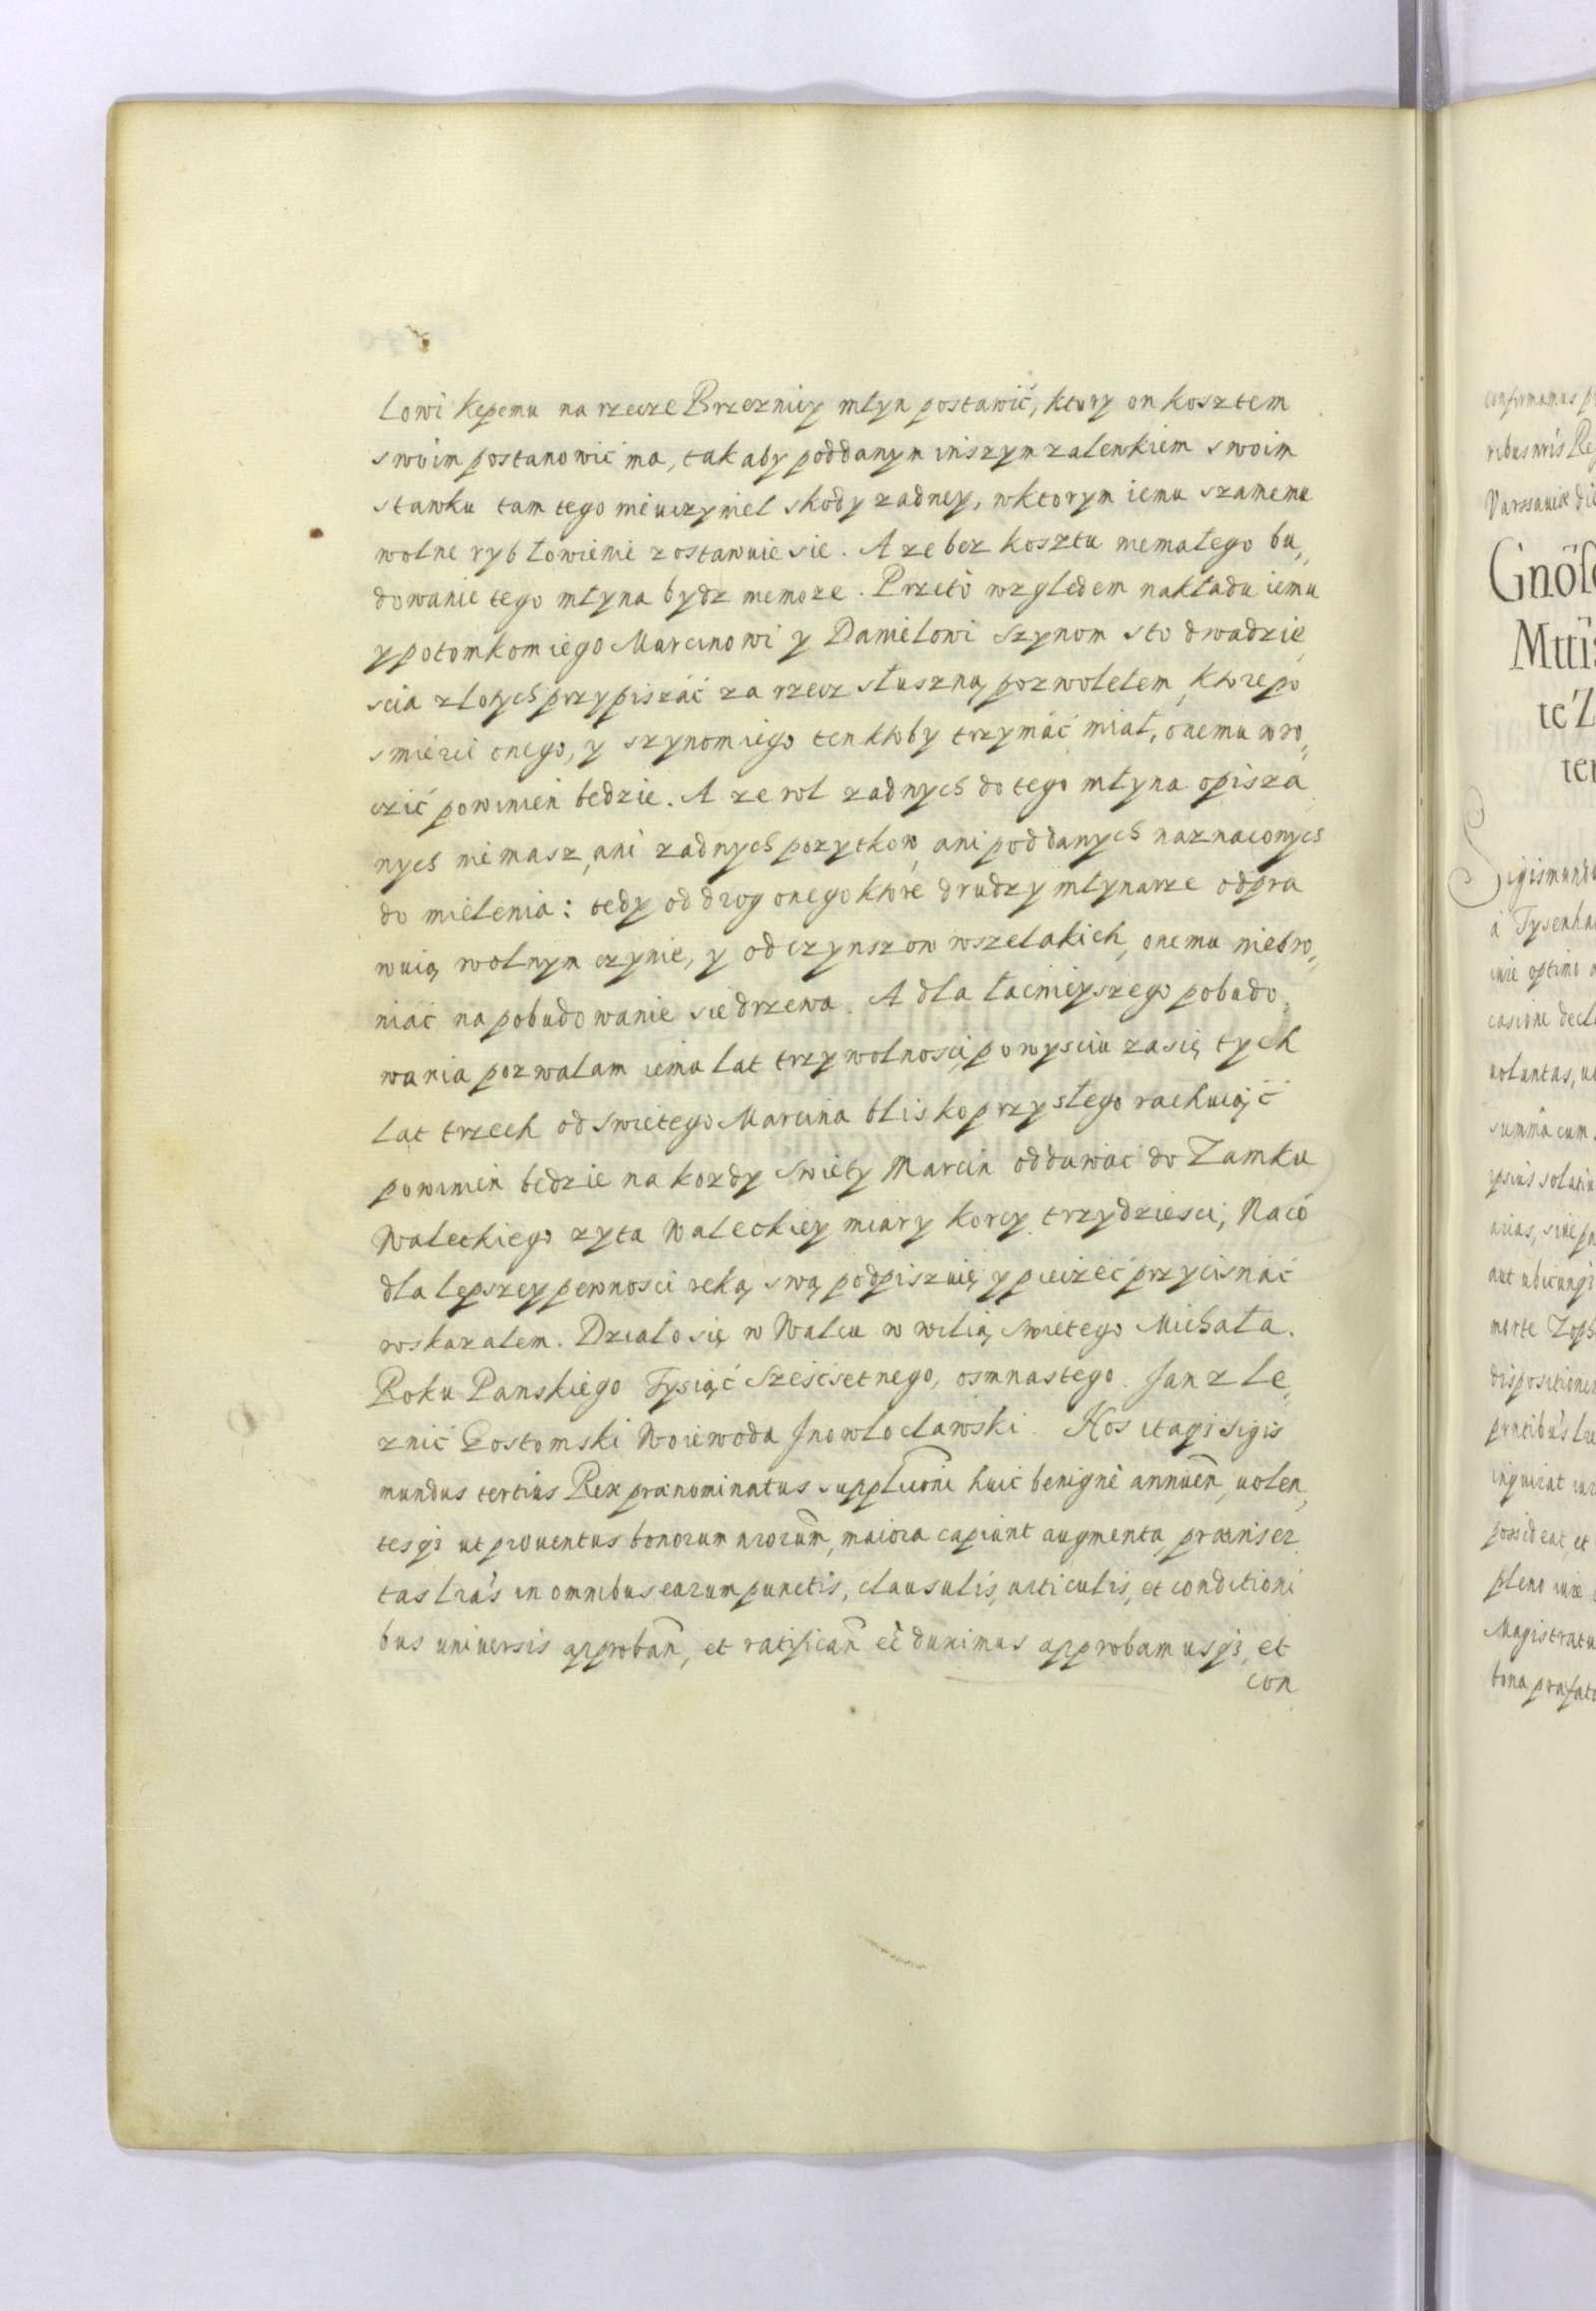 lowi Kepemu na rzecze Brzeznicy młyn postawić, ktory on kosztem
swoim postanowić ma, tak aby poddanym inszym zalewkiem swoim
stawku tam tego nieuczyniel skody zadney, wktorym iemu szamemu
wolne ryb łowienie zostawuie sie. A ze bez kosztu niemałego bu,
dowanie tego młyna bydz niemoze. Przeto względem nakładu iemu
y potomkom iego Marcinowi y Danielowi Szynom sto dwadzie
scia złotych przypiszać za rzecz słuszną pozwolełem, ktore po
smierci onego, y szynom iego ten ktoby trzymać miał, onemu wro,
czić powinien bedzie. A ze rol zadnych do tego młyna opisza
nych nimasz, ani zadnych pozytkow, ani poddanych naznaconych
do mielenia: tedy od drog onego ktore drudzy młynarze odpra
wuią wolnym czynie, y od czynszow wszelakich, onemu niebro,
niać na pobudowanie sie drzewa. A dla łacnieyszego pobudo,
wania pozwalam iemu lat trzy wolnosci, po wysciu zasię tych
lat trzech od swietego Marcina blisko przysłego rachuiąć
powinien bedzie na kozdy Swiety Marcin oddawać do Zamku
Wałeckiego zyta Wałeckiey miary korcy trzydziesci, Na co
dla lepszey pewnosci reką swą podpiszuię y pieczeć przycisnać
roskazałem. Działo się w Walcu w wilią Swietego Michała.
Roku Panskiego Tysiąć Sześćsetnego, osmnastego. Jan z Le,
znić Gostomski Woiewoda Jnowlocławski. Nos itaq3 Sigis
mundus tertius Rex prænominatus supplicōni huic benignè annuēn, uolen,
tesq3 ut prouentus bonorum nrorūm, maiora capiunt augmenta, præinser
tas lrās in omnibus earum punctis, clausulis, articulis, et conditioni
bus uniuersis approbān, et ratificān eē duximus approbamusq3, et
con
confirmamus
Varssauiæ
Sigismund
a
casione
summa cum
ipsius
morte
possideat, et
pleno iure
bona